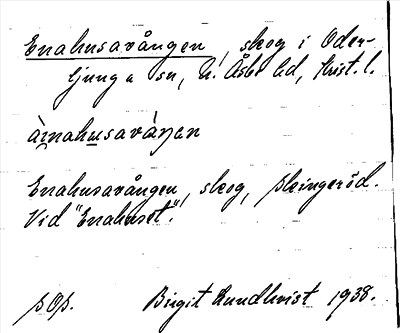 Enahusavången, skog i Oder-
ljunga sn, N. Åsbo hd, Krist. l.
àinahusavàŋen
Enahusavången, skog, Skeingeröd.
Vid "Enahuset".
Birgit Lundkvist 1938.